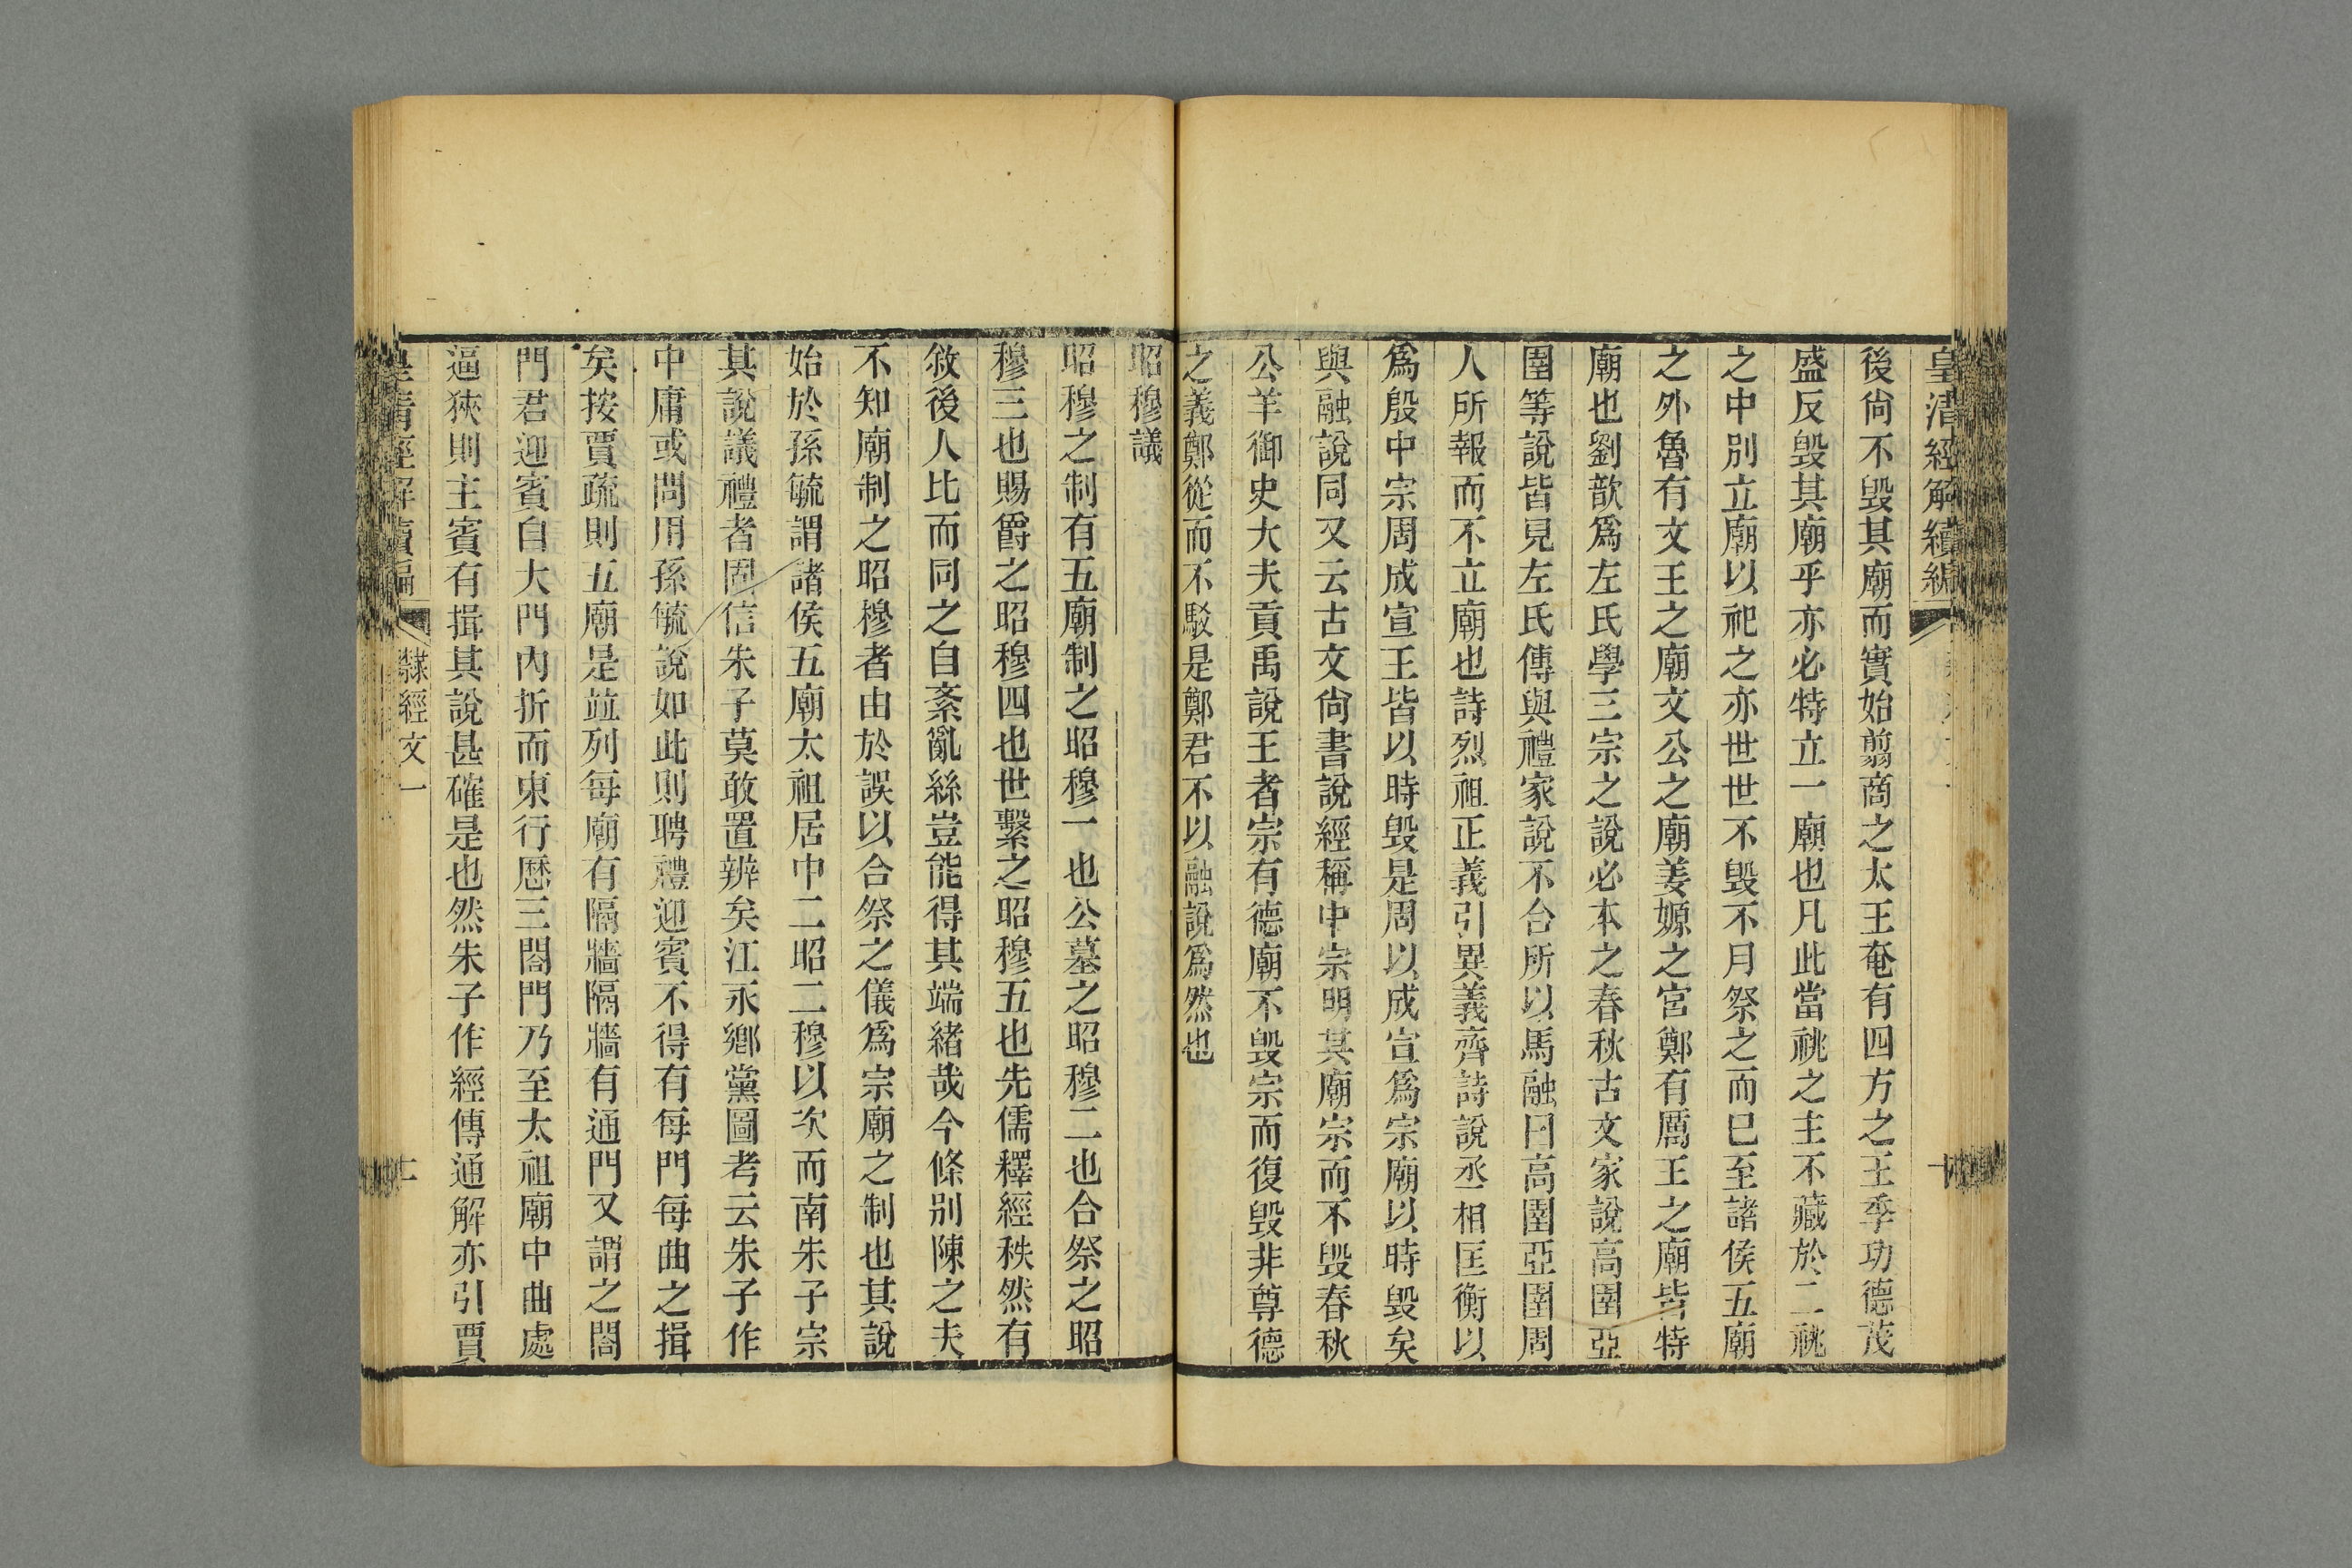 皇清經解續編
後尙不毀其廟而實始翦商之太王奄有四方之王季功德茂
盛反毀其廟乎亦必特立一廟也凡此當祧之主不藏於二祧
之中別立廟以祀之亦世世不毀不月祭之而已至諸侯五廟
之外魯有文王之廟文公之廟姜嫄之宮鄭有厲王之廟皆特
廟也劉歆爲左氏學三宗之說必本之春秋古文家說高圉亞
圉等說皆見左氏傳與禮家說不合所以馬融曰高圉亞圉周
人所報而不立廟也詩烈祖正義引異義齊詩說丞相匡衡以
爲殷中宗周成宣王皆以時毀是周以成宣爲宗廟以時毀矣
與融說同又云古文尙書說經稱中宗明其廟宗而不毀春秋
公羊御史大夫貢禹說王者宗有德廟不毀宗而復毀非尊德
之義鄭從而不駁是鄭君不以融說爲然也
昭穆議
昭穆之制有五廟制之昭穆一也公墓之昭穆二也合祭之昭
穆三也賜爵之昭穆四也世繫之昭穆五也先儒釋經秩然有
敘後人比而同之自紊亂絲豈能得其端緒哉今條別陳之夫
不知廟制之昭穆者由於誤以合祭之儀爲宗廟之制也其說
始於孫毓謂諸侯五廟太祖居中二昭二穆以次而南朱子宗
其說議禮者固信朱子莫敢置辨矣江永鄉黨圖考云朱子作
中庸或問用孫毓說如此則聘禮迎賓不得有每門每曲之揖
矣按賈疏則五廟是並列每廟有隔牆隔牆有通門又謂之閤
門君迎賓自大門內折而東行歷三閤門乃至太祖廟中曲處
逼狹則主賓有揖其說甚確是也然朱子作經傳通解亦引賈
皇清經解續編 隸經文一